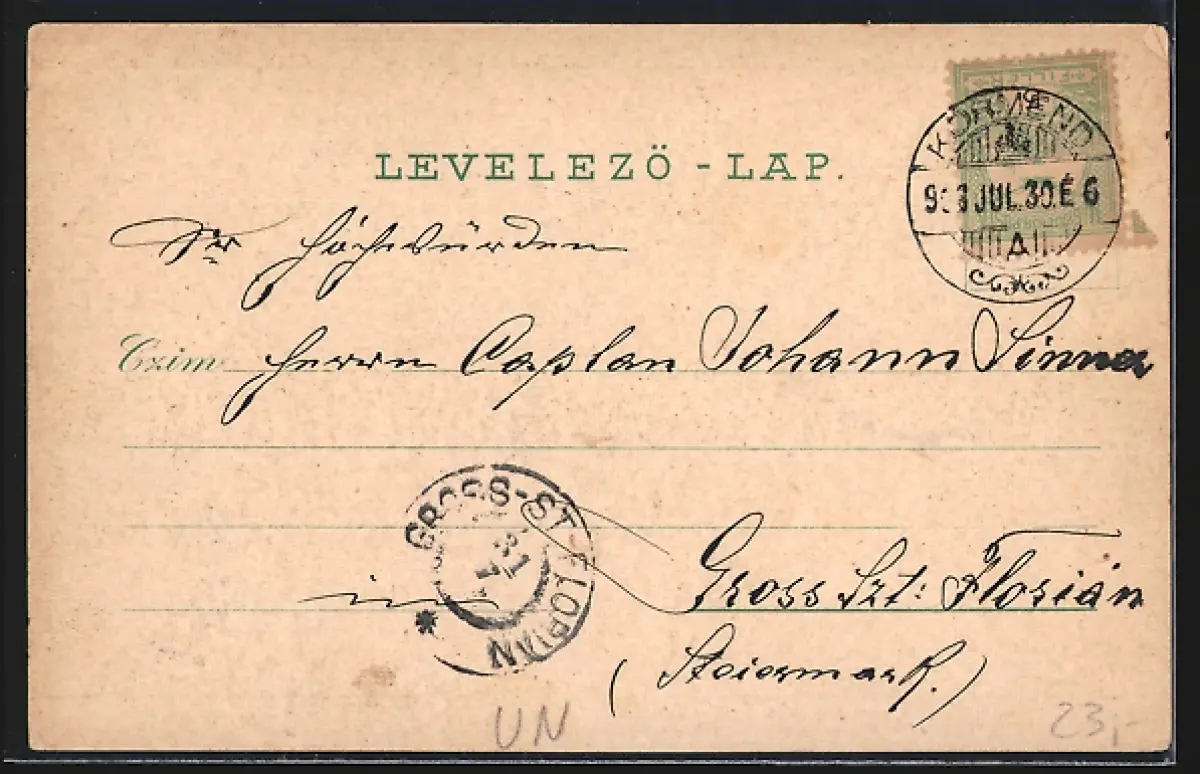 FILLÉR
KÖRMEND
LEVELEZÖ - LAP.
JUL.30.É 6
A
Sr Hochwürden
Czim Herrn Caplan Johann Sinner
GROSS-ST. FLORIAN
31
7
in Gross Szt: Florián
(Steiermark.)
UN 23,-